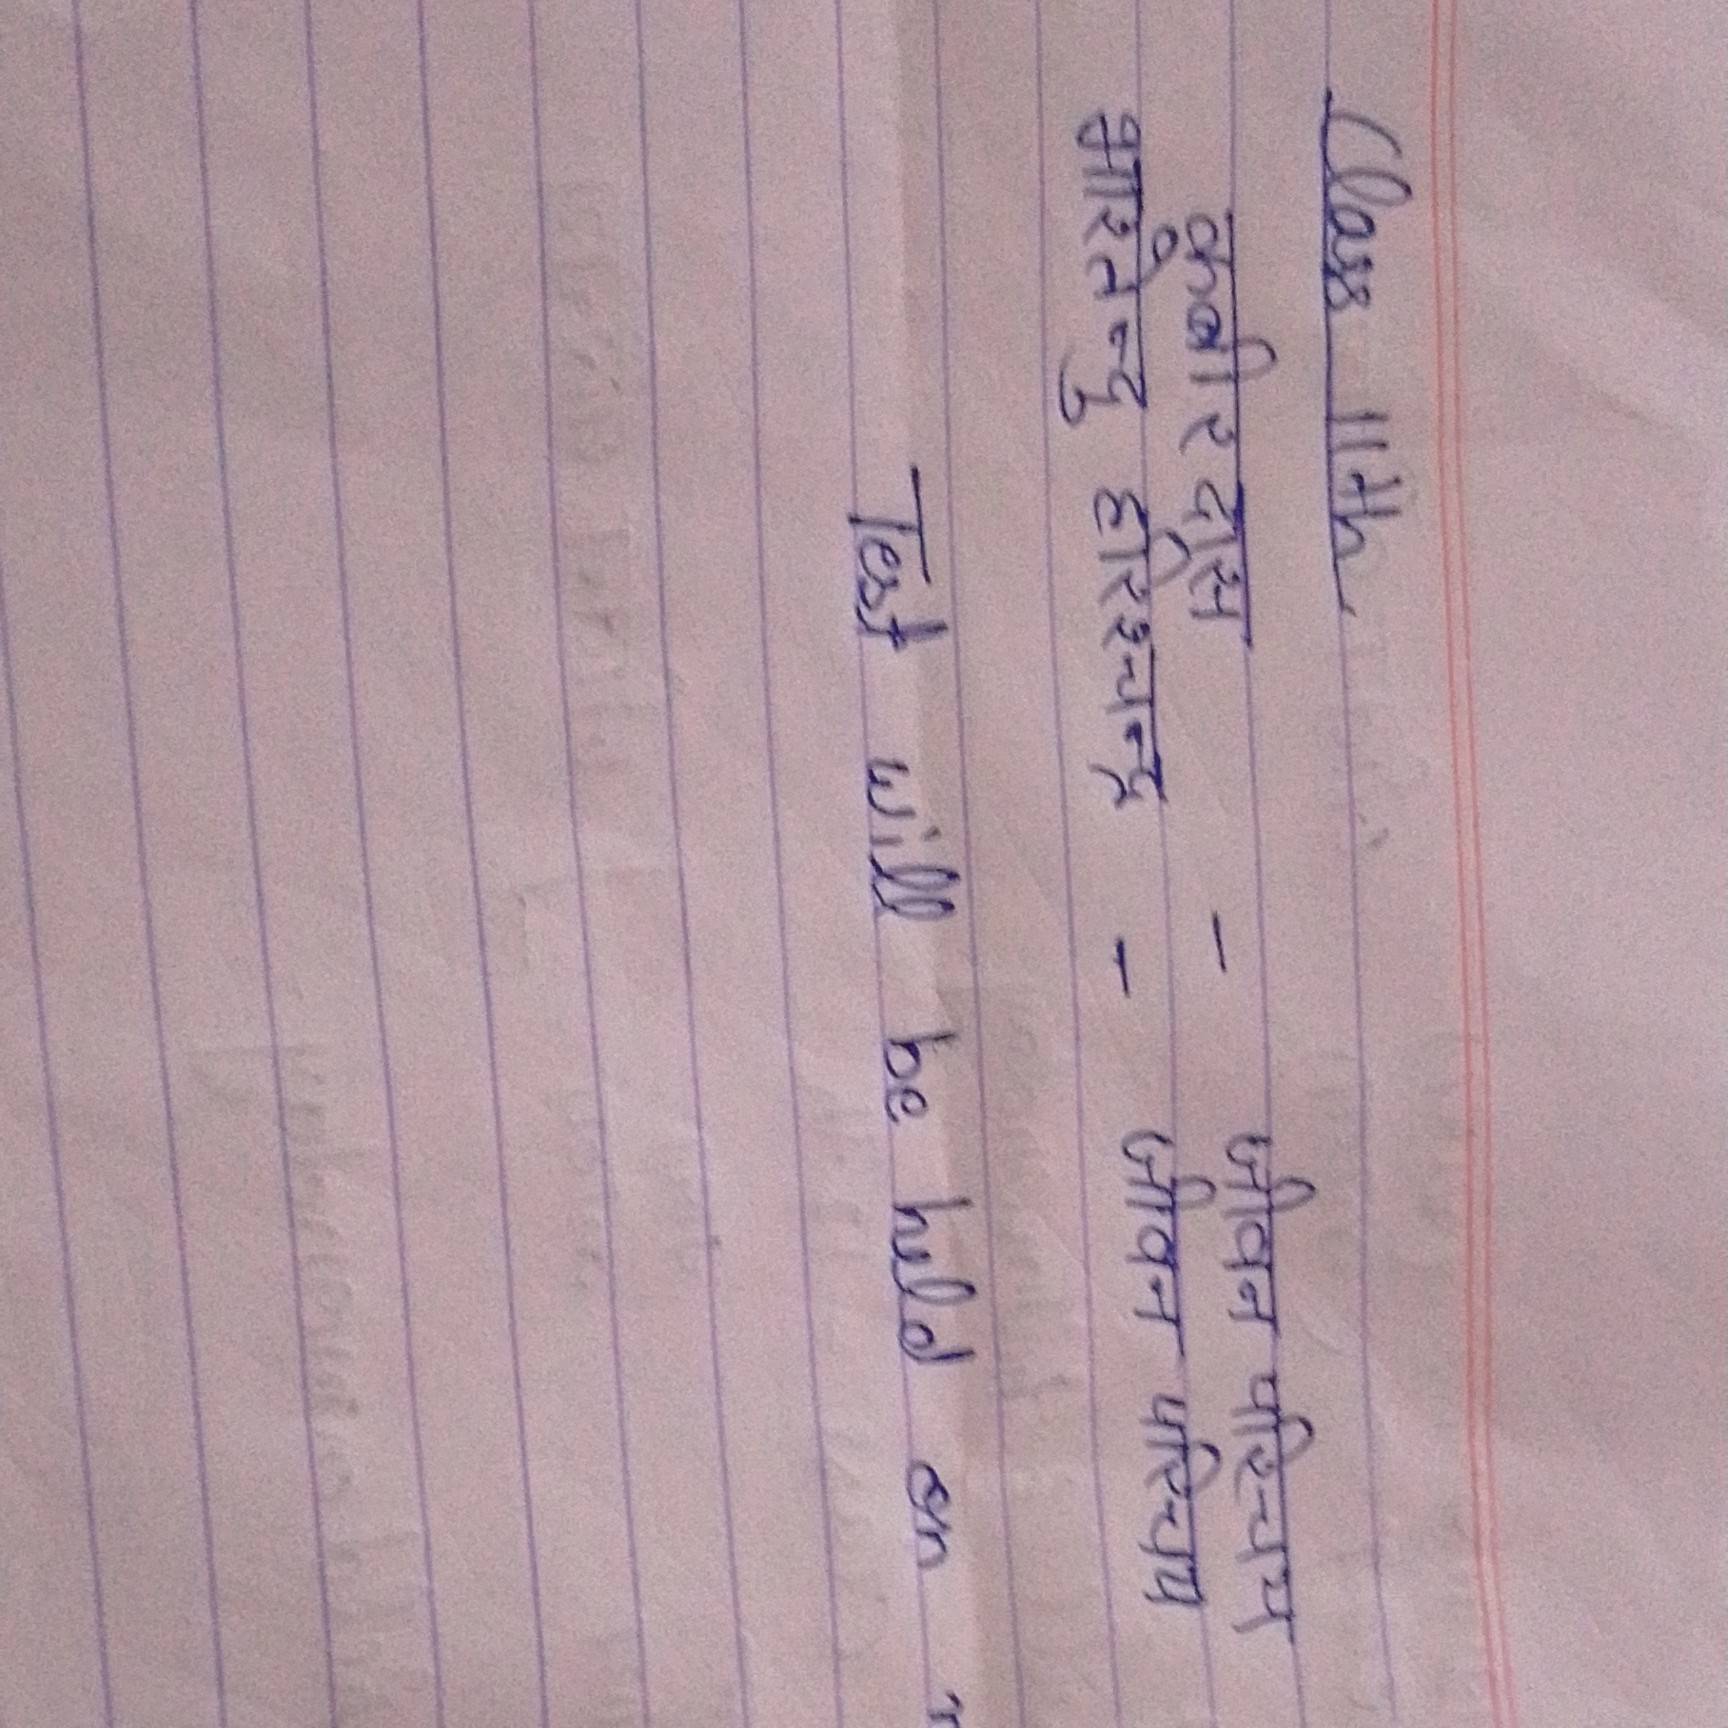 Class 11th
कबीर दास - जीवन परिचय
भारतेन्दु हरिश्चन्द्र - जीवन परिचय
Test will be huld on